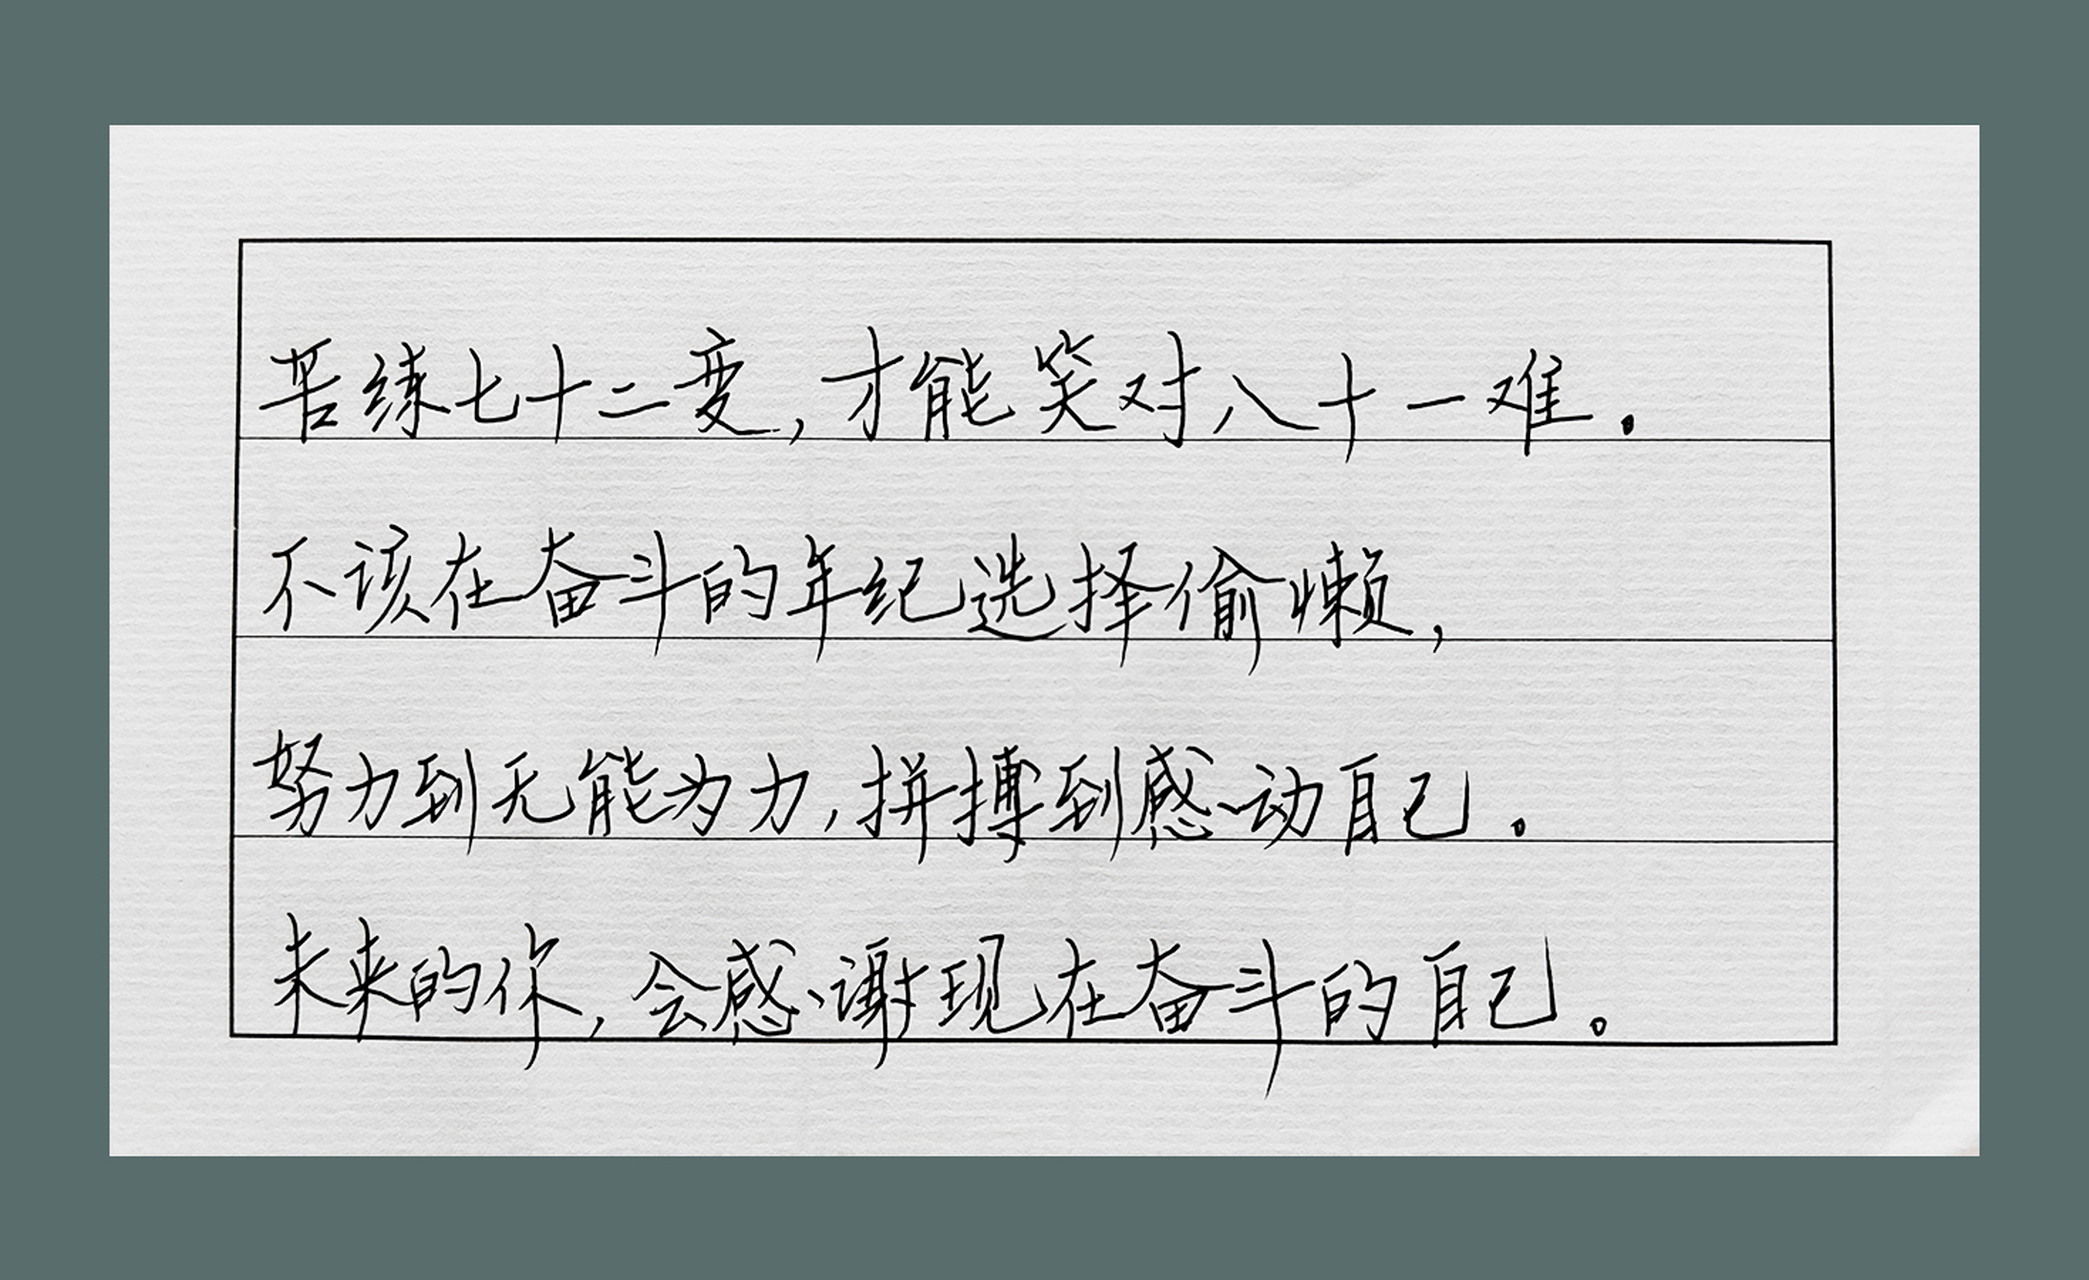 苦练七十二变，才能笑对八十一难。
不该在奋斗的年纪选择偷懒，
努力到无能为力，拼搏到感动自己。
未来的你，会感谢现在奋斗的自己。